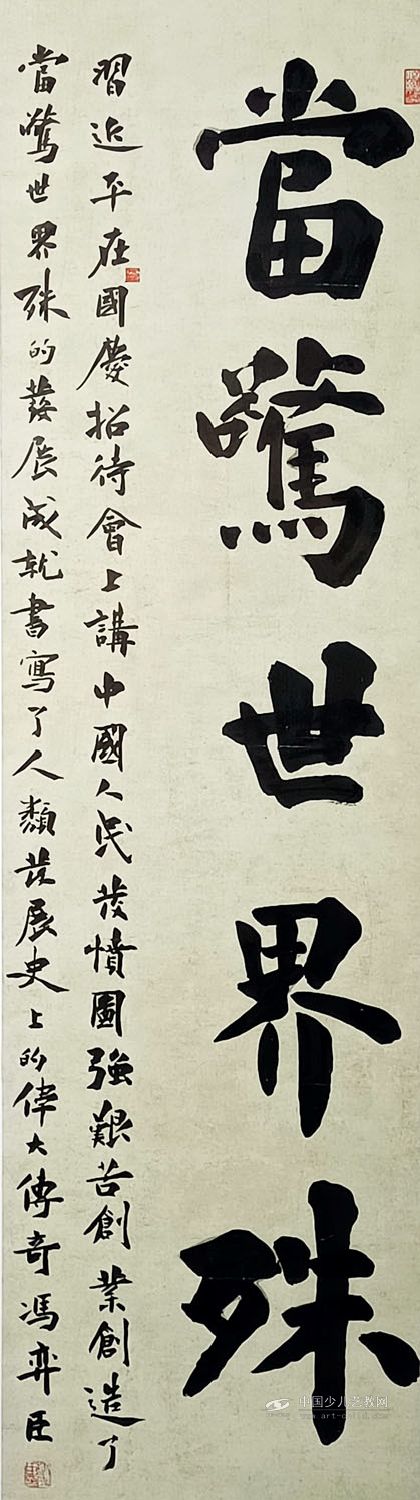 當驚世界殊
習近平在國慶招待會上講中國人民發憤圖強艱苦創業創造了
當驚世界殊的發展成就書寫了人類發展史上的偉大傳奇馮弈臣
中国少儿艺教网
www.art-child.com